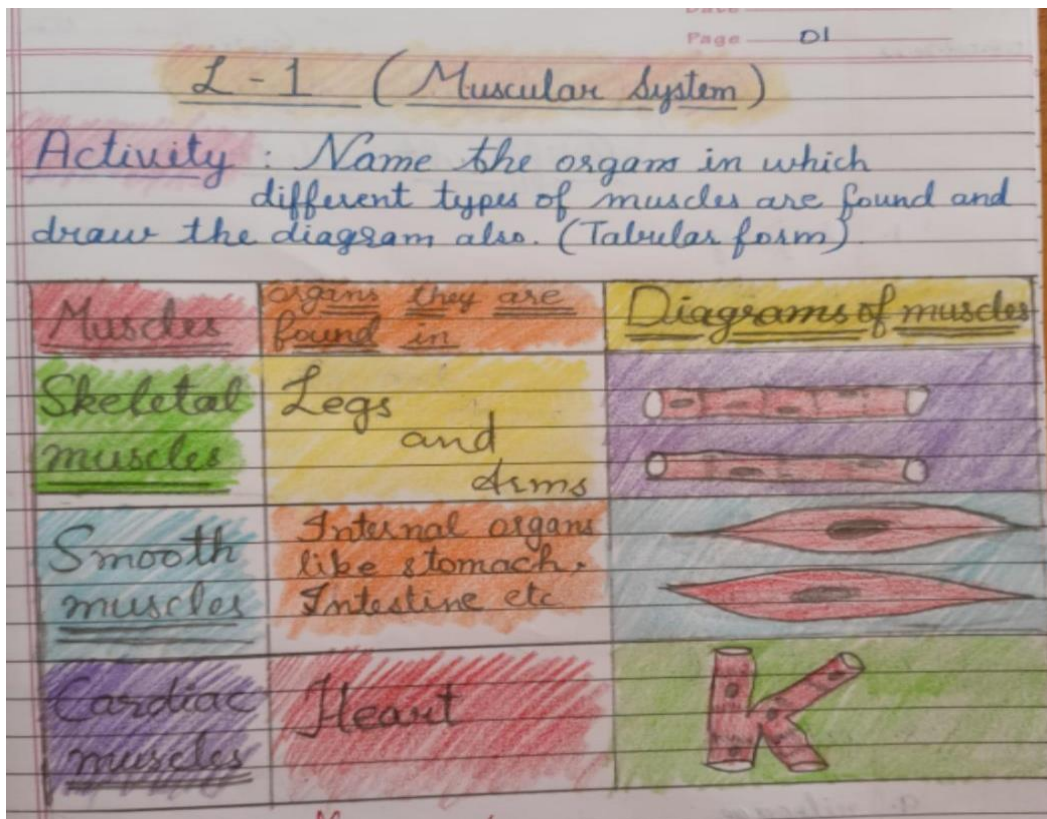 Date
Page 01
L-1 (Muscular System)
Activity : Name the organs in which
different types of muscles are found and
draw the diagram also. (Tabular form)
Muscles
organs they are
found in
Diagrams of muscles
Skeletal
muscles
Legs
and
Arms
Smooth
muscles
Internal organs
like stomach,
Intestine etc
Cardiac
muscles
Heart